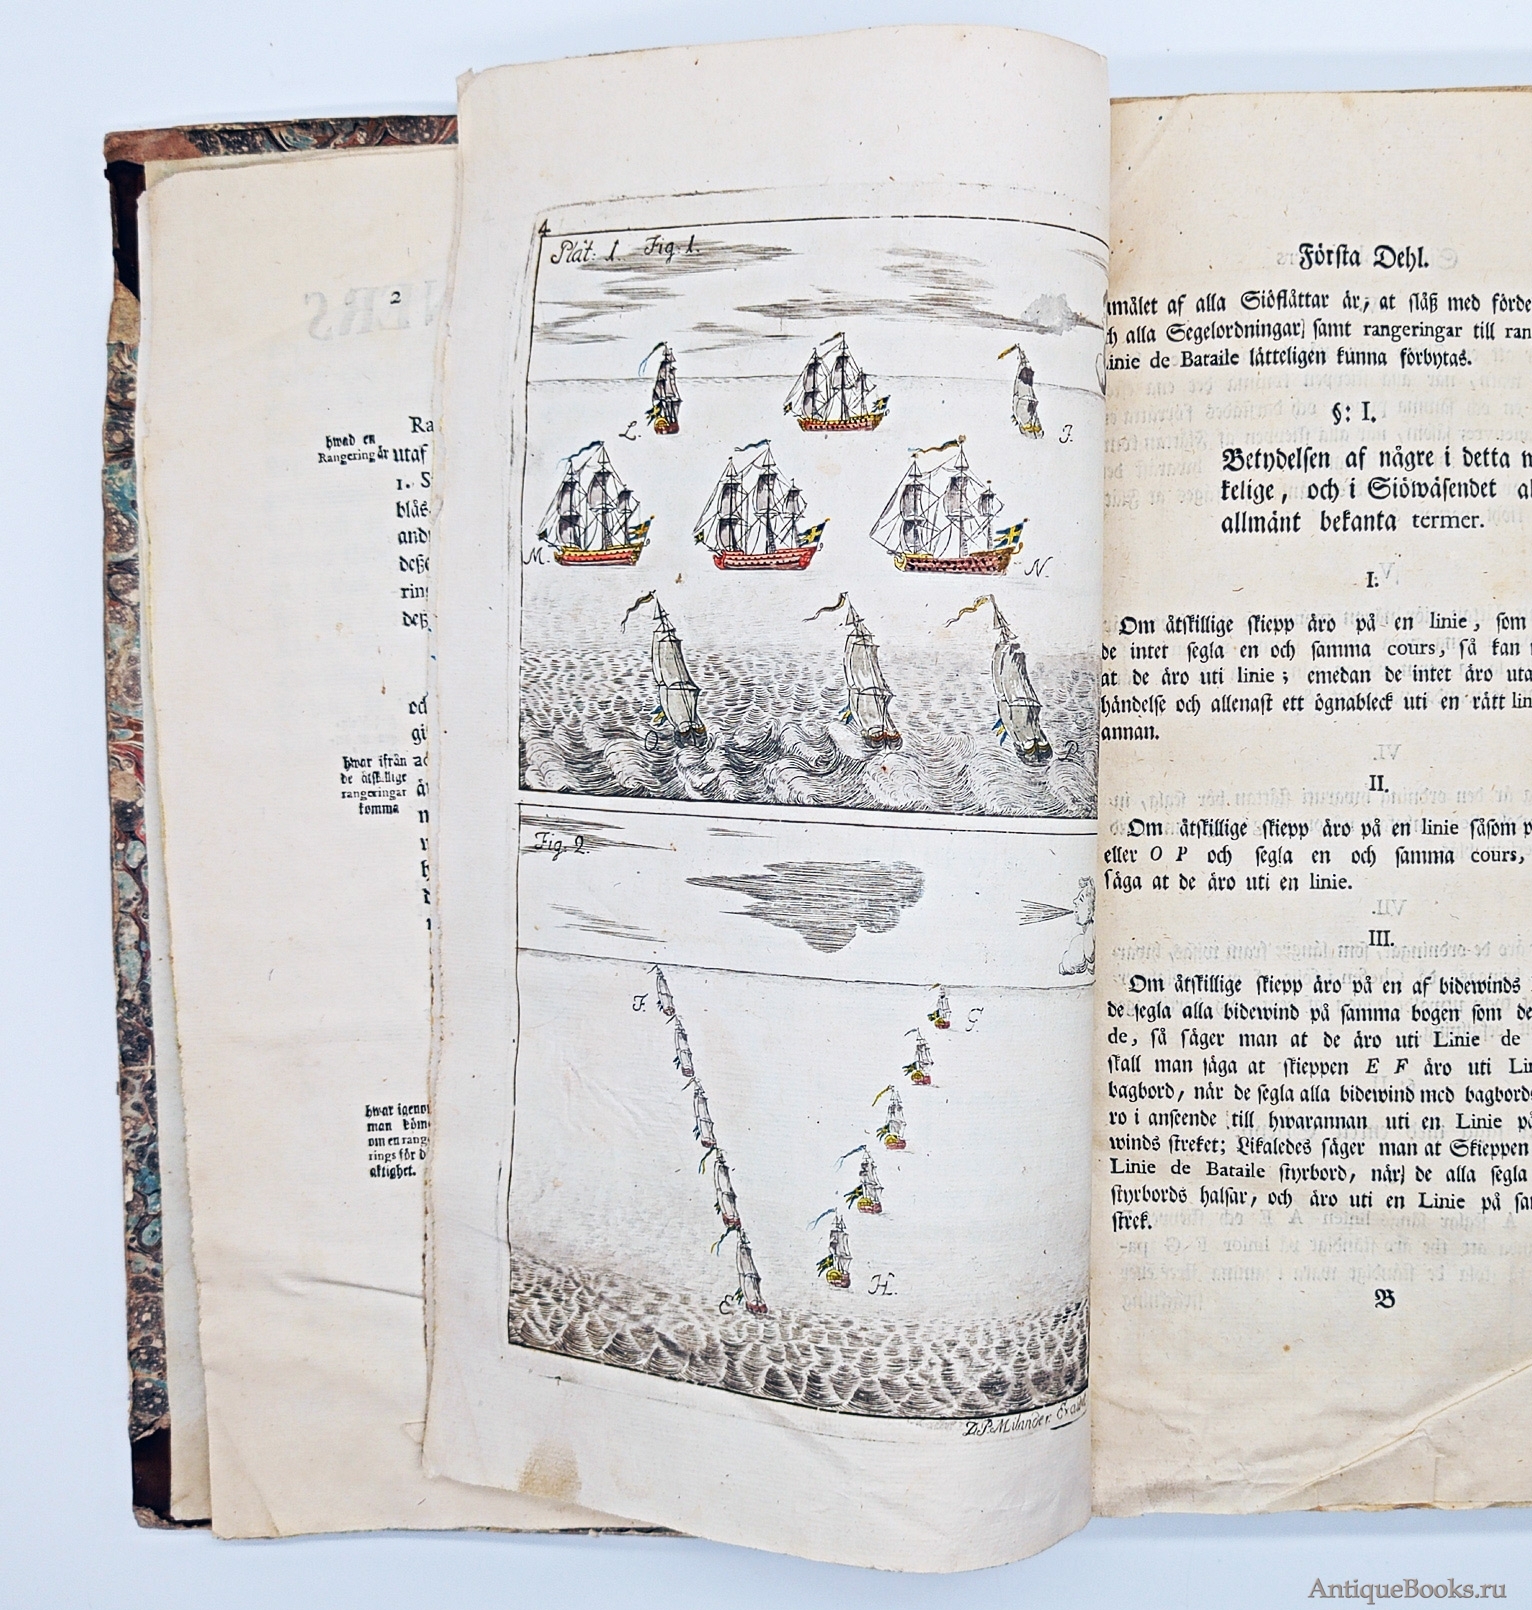 NERS
2
Ra
hwad en
Rangering är utaf
1. S
blås
and
deße
ring
deß
och
gi
hwar ifrån
de åtskillige
rangeringar
komma
hwar igenom
man
om en rang
rings för d
aktighet.
4
Plåt: 1. Fig: 1.
L.
J.
M.
N.
O
P
Fig. 2.
F.
G.
E
H.
Z.P. Milander Exaud
Första Dehl.
målet af alla Siöflåttar är, at slåß med förde
ch alla Segelordningar samt rangeringar till ran
Linie de Bataile lätteligen kunna förbytas.
§: I.
Betydelsen af någre i detta
kelige, och i Siöwäsendet al
allmänt bekanta termer.
I.
Om åtskillige skiepp äro på en linie, som
de intet segla en och samma cours, så kan
at de äro uti linie; emedan de intet äro uta
händelse och allenast ett ögnableck uti en rätt lin
annan.
II.
Om åtskillige skiepp äro på en linie såsom p
eller O P och segla en och samma cours,
säga at de äro uti en linie.
III.
Om åtskillige skiepp äro på en af bidewinds
de segla alla bidewind på samma bogen som de
de, så säger man at de äro uti Linie de
skall man säga at skieppen E F äro uti Lin
bagbord, när de segla alla bidewind med bagbords
ro i anseende till hwarannan uti en Linie på
winds streket; Likaledes säger man at Skieppen
Linie de Bataile styrbord, när de alla segla
styrbords halsar, och äro uti en Linie på sam
strek.
B
AntiqueBooks.ru